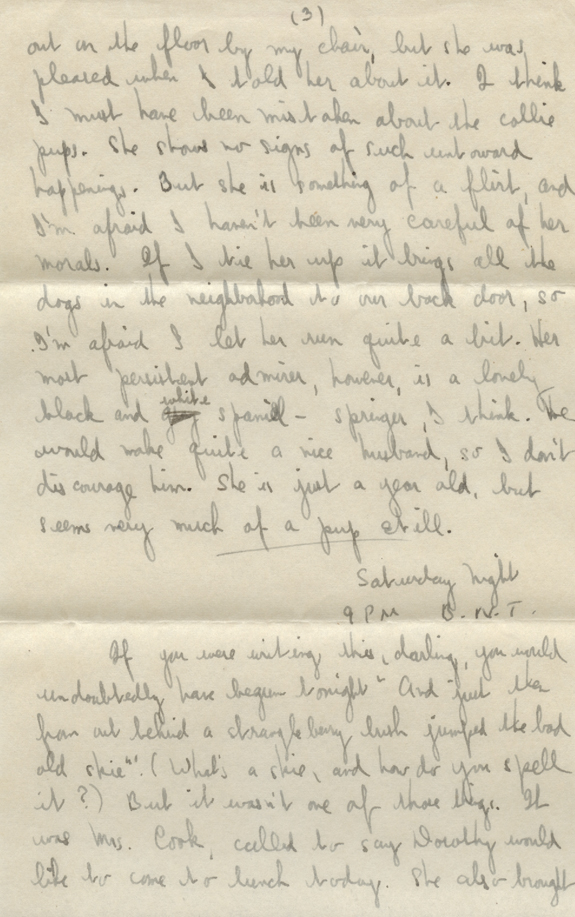 (3)
out on the floor by my chair, but she was
pleased when I told her about it. I think
I must have been mistaken about the collie
pups. She shows no signs of such untoward
happenings. But she is something of a flirt, and
I'm afraid I haven't been very careful of her
morals. If I tie her up it brings all the
dogs in the neighborhood to our back door, so
I'm afraid I let her run quite a bit. Her
most persistent admirer, however, is a lonely
black and white spaniel - springer, I think. He
would make quite a nice husband, so I don't
discourage him. She is just a year old, but
seems very much of a pup still.
Saturday Night
9 PM B.N.T.
If you were writing this, darling, you would
undoubtedly have begun tonight "And just then
from out behind a strangleberry bush jumped the bad
old skie". (What's a skie, and how do you spell
it?) But it wasn't one of those things. It
was Mrs. Cook, called to say Dorothy would
like to come to lunch today. She also brought